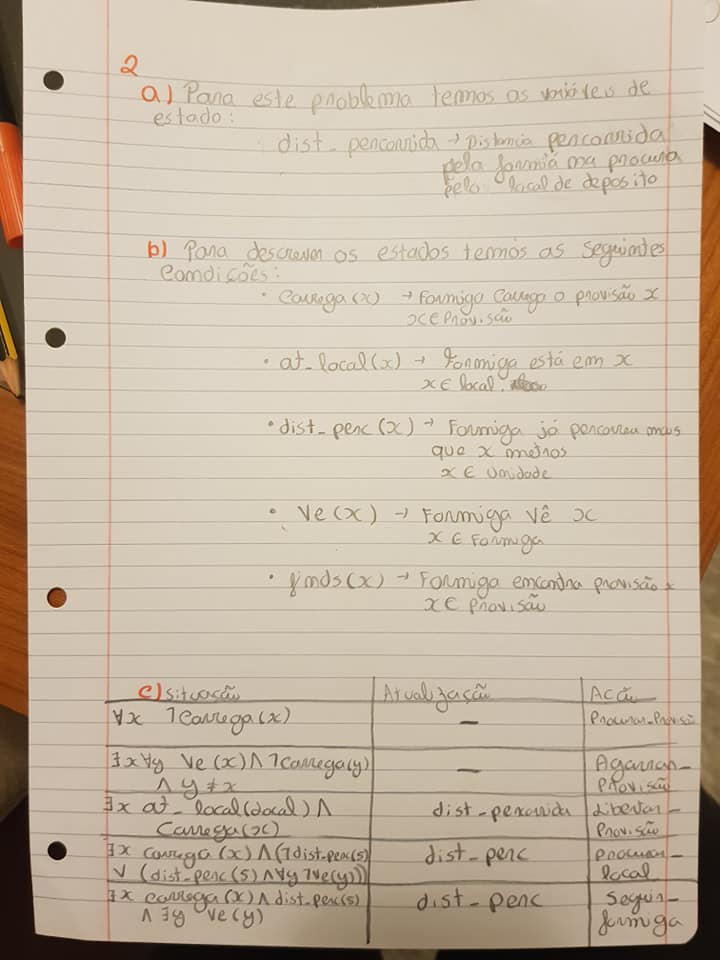 2
a) Para este problema temos as variáveis de
estado:
dist_percorrida → Distancia percorrida
pela formia na procura
pelo local de deposito
b) Para descrever os estados temos as seguintes
Condições:
• Carrega (x) → Formiga Carrega o provisão x
x ∈ Provisão
• at_local(x) → Formiga está em x
x ∈ local.
• dist_perc (x) → Formiga já percorreu mais
que x metros
x ∈ Unidade
• Ve (x) → Formiga vê x
x ∈ Formiga
• finds (x) → Formiga encontra provisão x
x ∈ Provisão
c) Situação Atualização Acão
∀x ¬Carrega (x) — Procurar_Provisão
∃x∀y Ve (x) ∧ ¬Carrega(y) — Agarrar_
∧ y ≠ x Provisão
∃x at_local (local) ∧ dist_percorrida Libertar_
Carrega (x) Provisão
∃x Carrega (x) ∧ (¬dist_perc(5) dist_perc Procurar_
∨ (dist_perc (5) ∧ ∀y ¬ve(y))) local
∃x carrega (x) ∧ dist_perc(5) dist_perc Seguir_
∧ ∃y ve (y) formiga